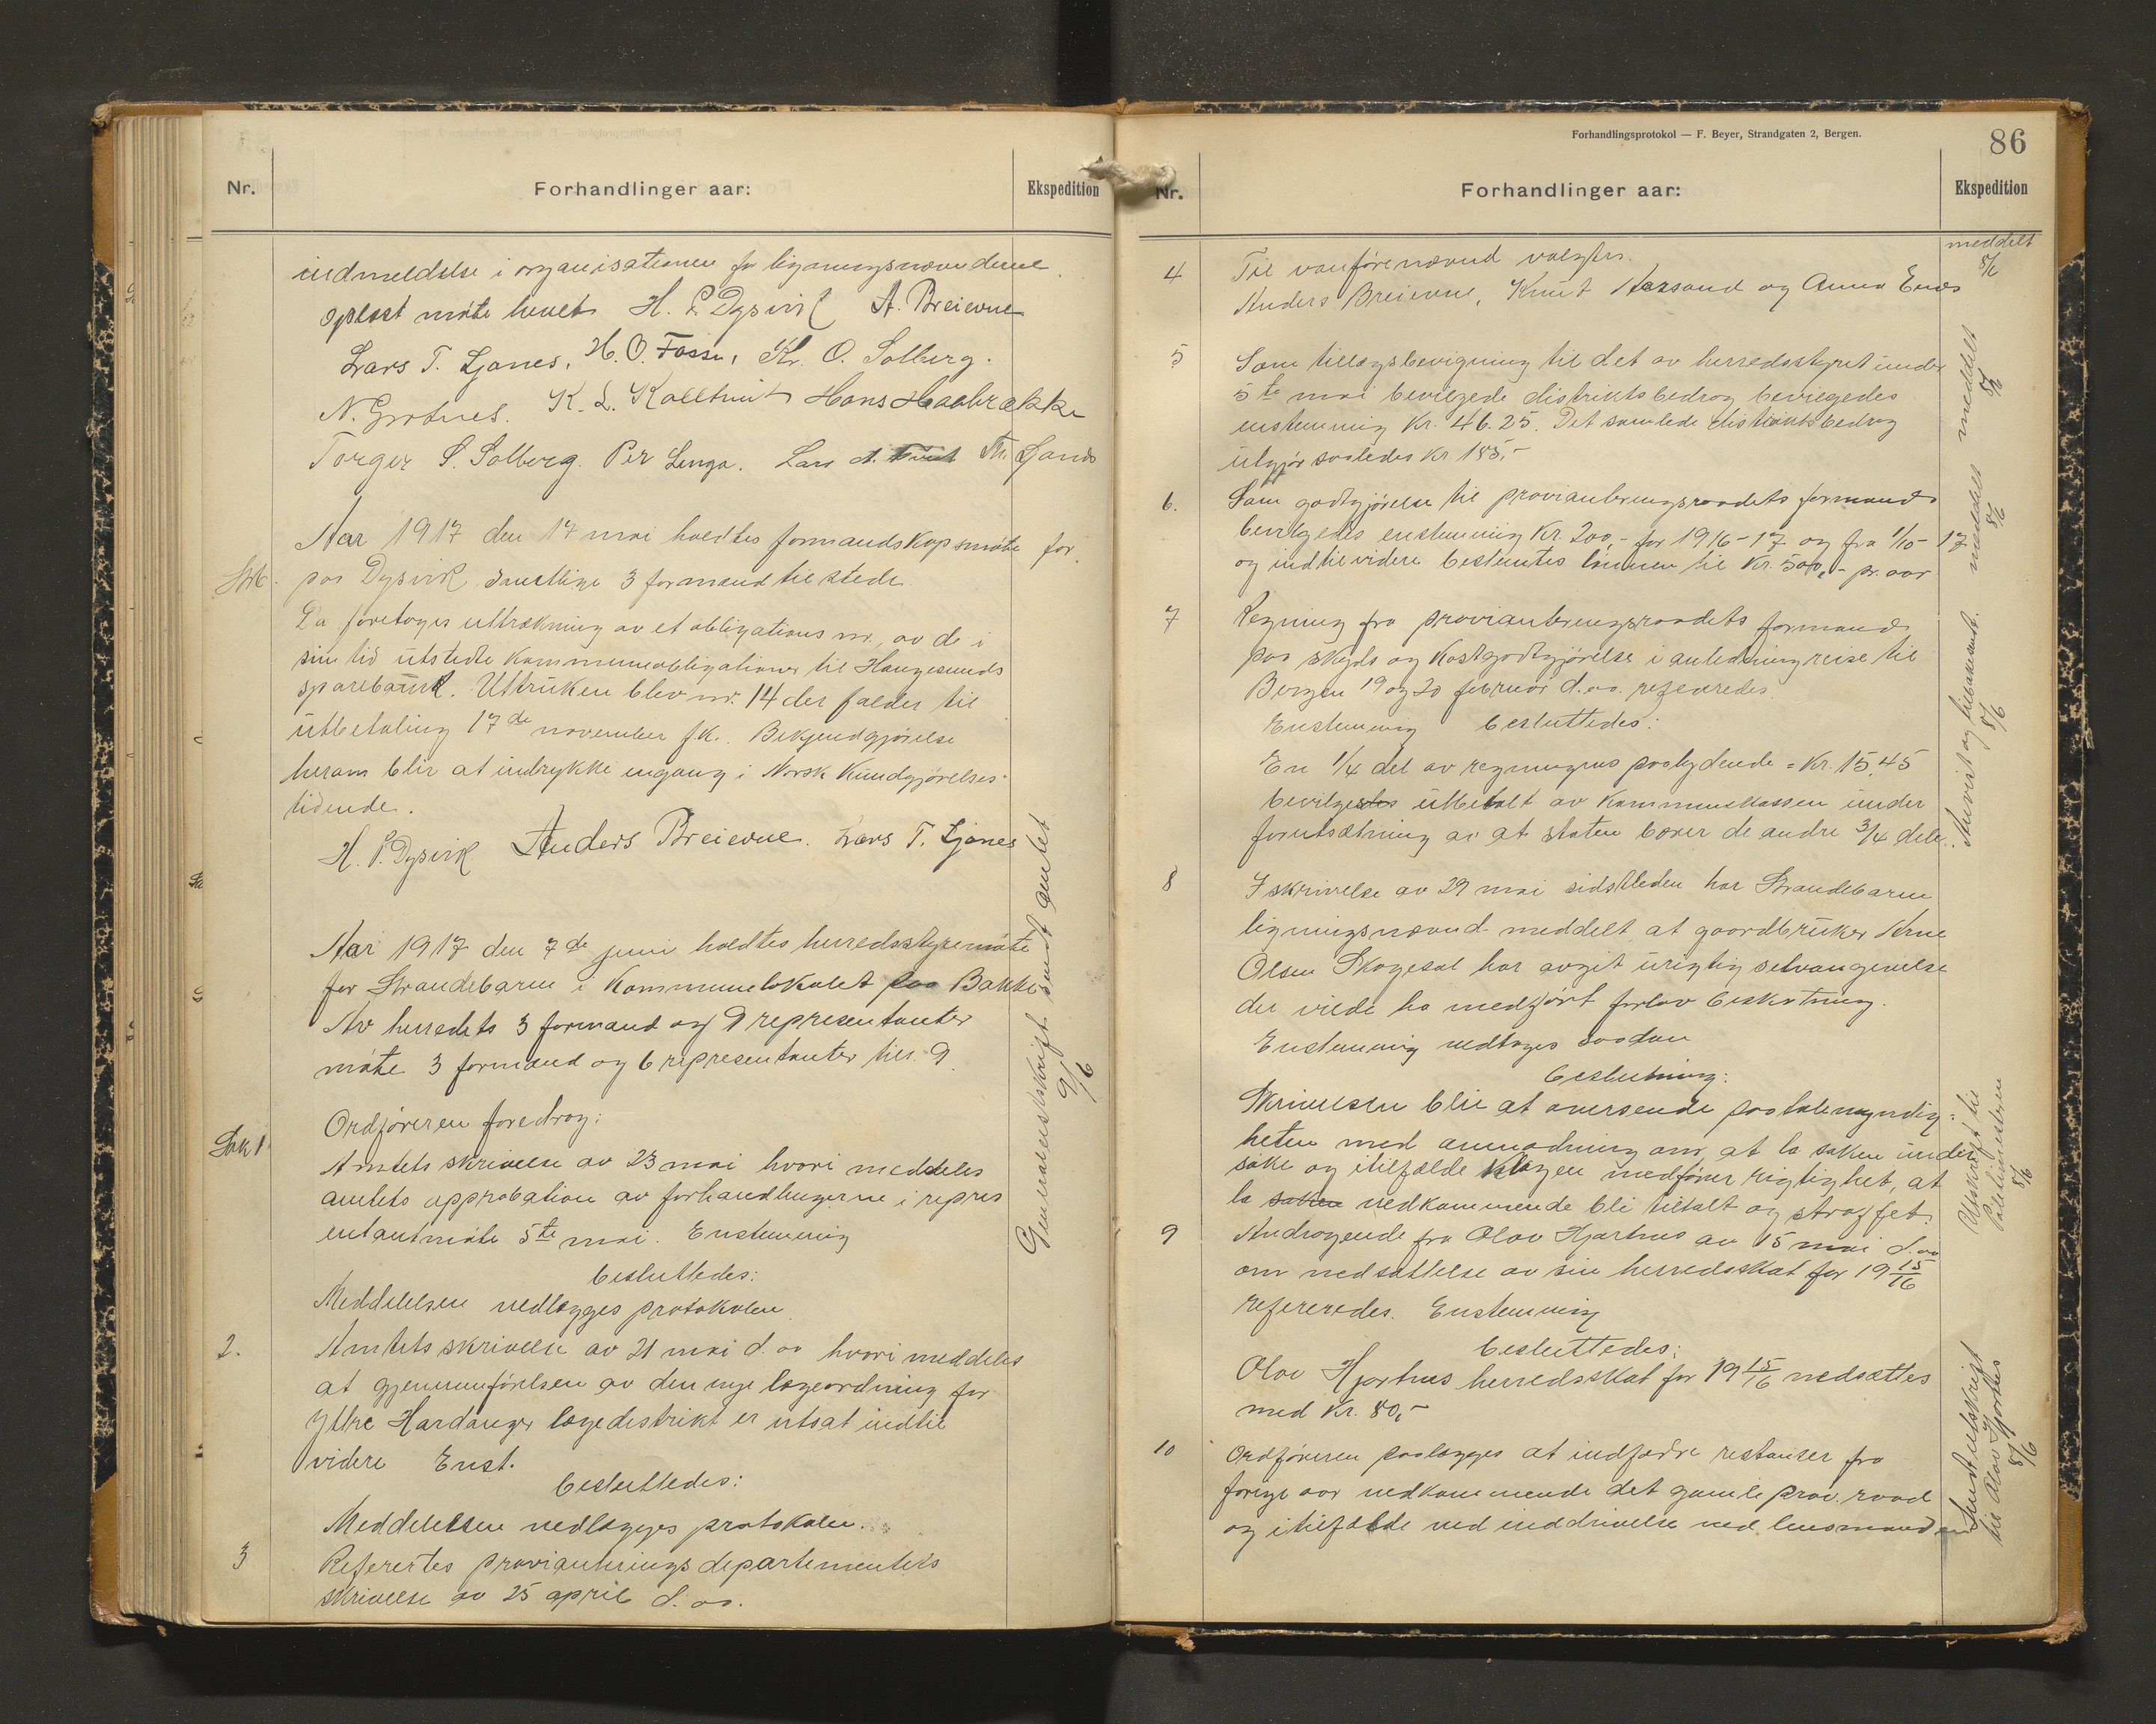 Nr.
Forhandlinger aar:
Ekspedition
indmeldelse i organisationen for ligningsnævnderne.
Oplæst møte hævet H. P. Dysvik A. Breievne
Lars T. Ljones, H. O. Fosse, Kr. O. Solberg.
N. Grotnes. K. L. Kalltveit Hans Haabrække
Torger S. Solberg. Per Linga. Lars A. Tveit Th. Ljones
Aar 1917 den 17 mai holdtes formandskapsmøte for
Strb. paa Dysvik samtlige 3 formænd tilstede.
Da foretoges uttrækning av et obligations nr. av de i
sin tid utstedte kommuneobligationer til Haugesunds
sparebank. Uttrukken blev nr. 14 der falder til
utbetaling 17de november f.k. Bekjendtgjørelse
herom blir at indrykke engang i Norsk Kundgjørelses-
tidende.
H. P. Dysvik Anders Breievne. Lars T. Ljones
Aar 1917 den 7de juni holdtes herredsstyremøte
for Strandebarm i Kommunelokalet paa Bakke
Av herredets 3 formænd og 9 representanter
møtte 3 formænd og 6 representanter tils. 9.
Ordføreren foredrog:
Sak 1
Amtets skrivelse av 23 mai hvori meddeles
amtets approbation av forhandlingerne i repres
entantmøte 5te mai. Enstemmig
besluttedes:
Meddelelsen vedlægges protokolen.
2.
Amtets skrivelse av 21 mai d. aa hvori meddeles
at gjennemførelsen av den nye lægeordning for
Ytre Hardanger lægedistrikt er utsat indtil
videre Enst.
besluttedes:
Meddelelsen vedlægges protokolen.
3
Refertes provianteringsdepartementets
skrivelse av 25 april d. aa.
Generalutskrift sendt amtet
9/6
Forhandlingsprotokol — F. Beyer, Strandgaten 2, Bergen.
86
Nr.
Forhandlinger aar:
Ekspedition
4
Til vanførenævnd valgtes.
Anders Breievne, Knut Aarsand og Anna Enes
meddelt
8/6
5
Som tillægsbevilgning til det av herredsstyret under
5te mai bevilgede distriktsbedrag bevilgedes
enstemmig Kr. 46.25. Det samlede distriktsbedrag
utgjør saaledes Kr 185,-
meddelt
8/6
6.
Som godtgjørelse til provianteringsraadets formand
bevilgedes enstemmig Kr. 200,- for 1916-17 og fra 1/10-17
og indtil videre bestemtes lønnen til Kr. 500,- pr. aar
meddelt
8/6
7
Regning fra provianteringsraadets formand
paa skyds og kostgodtgjørelse i anledning reise til
Bergen 19 og 20 februar d. aa. refereredes.
Enstemmig besluttedes:
En 1/4 del av regningens paalydende = Kr. 15,45
bevilgedes utbetalt av kommunekassen under
forutsætning av at staten bærer de andre 3/4 dele.
Anvist og tilbakesendt.
8/6
8
I skrivelse av 29 mai sidstleden har Strandebarm
ligningsnævnd meddelt at gaardbruker Arne
Olsen Skogesal har avgit urigtig selvangivelse
der vilde ha medført forlav beskatning.
Enstemmig vedtoges saadan
beslutning:
Skrivelsen blir at oversende paatalemyndig-
heten med anmodning om, at la saken under
søke og itilfælde klagen medfører rigtighet, at
la saken vedkommende bli tiltalt og straffet.
Utskrift til
Politimesteren
8/6
9
Andragende fra Olav Hjartnes av 15 mai d. aa
om nedsættelse av sin herredsskat for 19 15/16
refereredes. Enstemmig
besluttedes:
Olav Hjartnes herredsskat for 19 15/16 nedsættes
med Kr. 80,-
Sendt utskrift
til Olav Hjartnes
8/6
10
Ordføreren paalægges at indfordre restanser fra
forrige aar vedkommende det gamle prov. raad
og itilfælde ved inddrivelse ved lensmanden